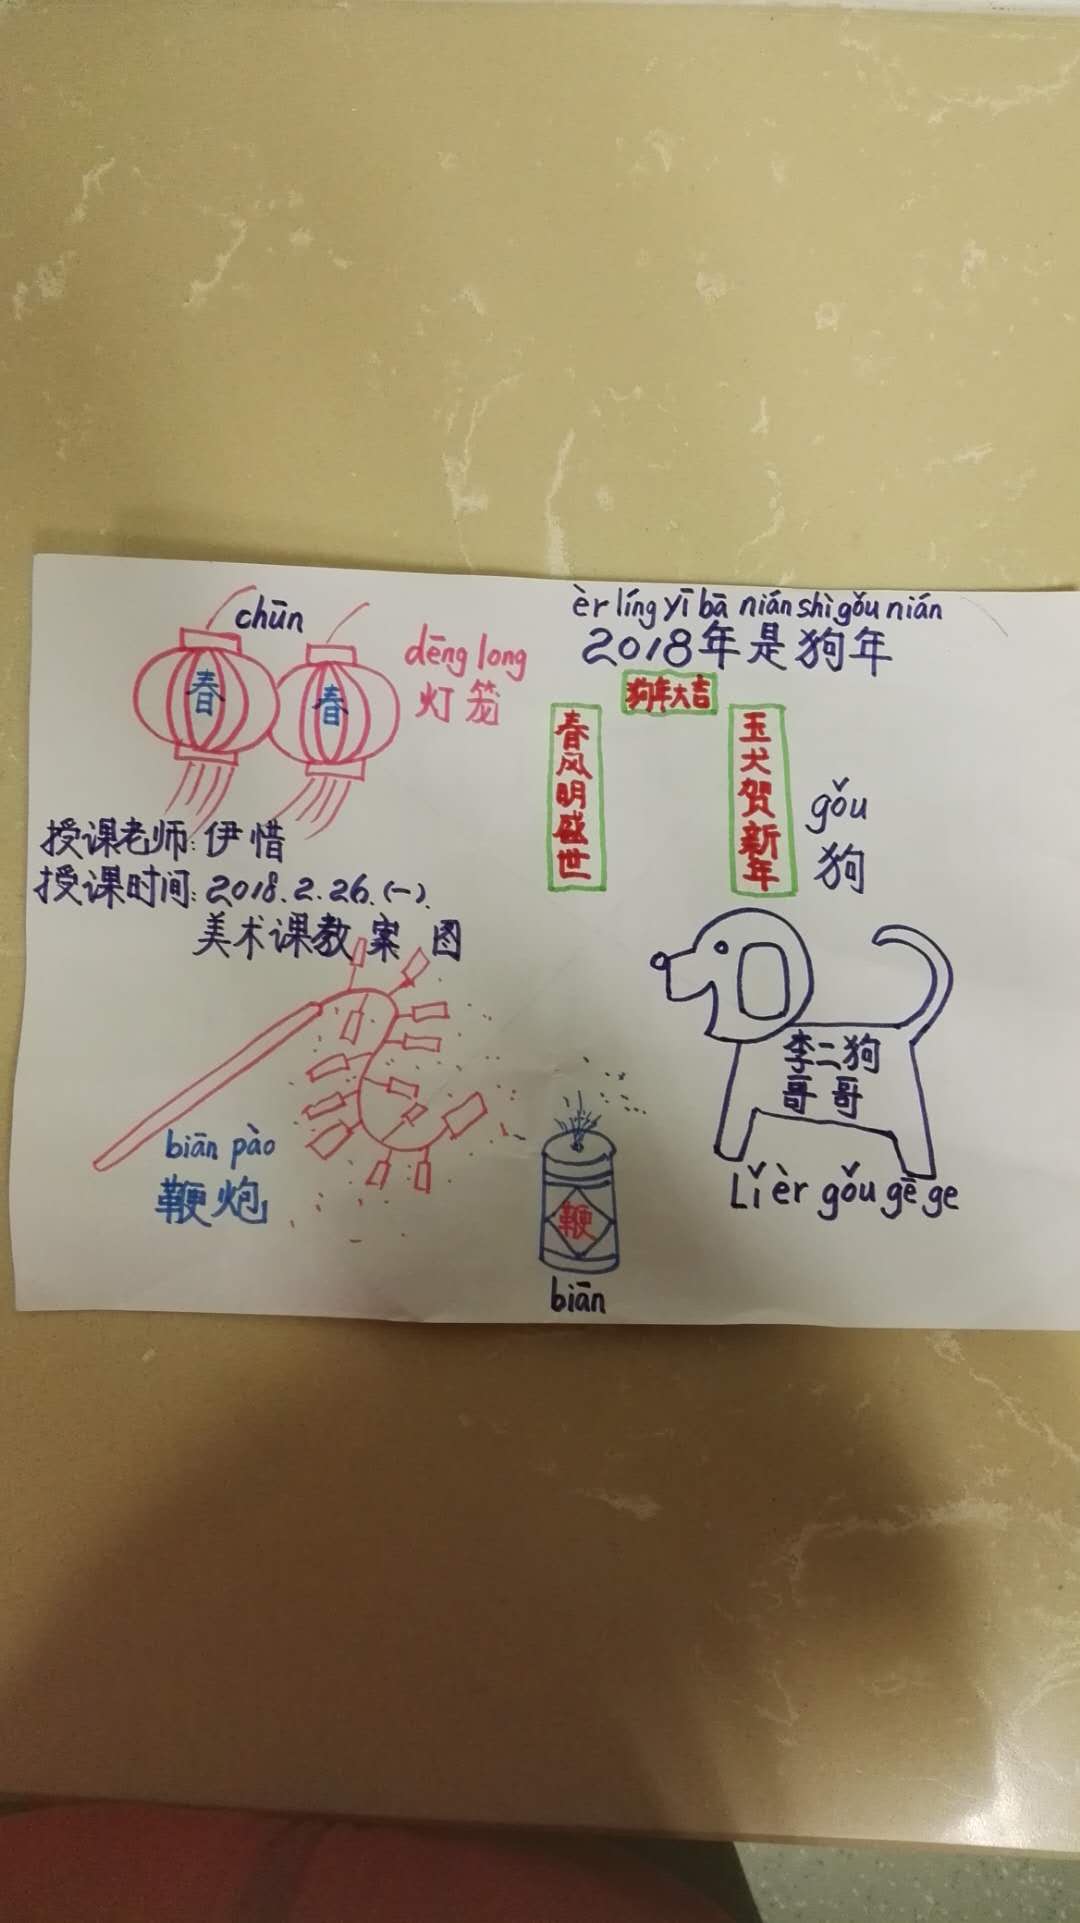 chūn
春
春
dēng long
灯笼
èr líng yī bā nián shì gǒu nián
2018年是狗年
狗年大吉
春风明盛世
玉犬贺新年
gǒu
狗
授课老师:伊惜
授课时间:2018.2.26.(一).
美术课教案图
李二狗
哥哥
Lǐ èr gǒu gē ge
biān pào
鞭炮
鞭
biān